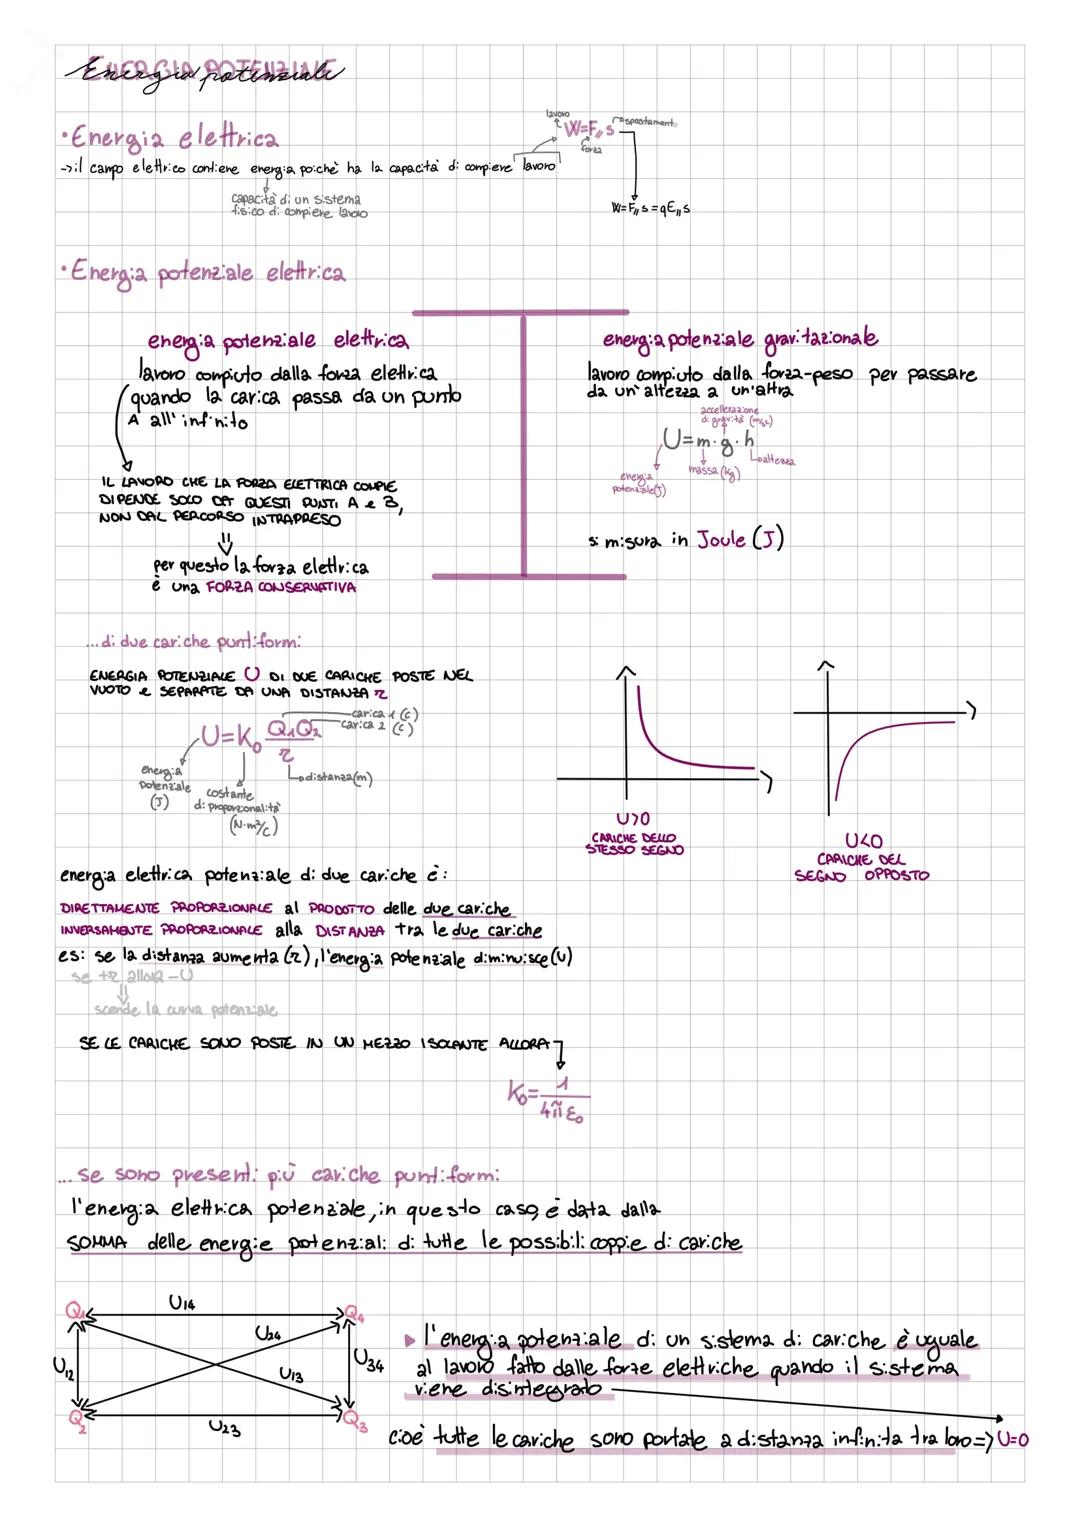 Energia potenziale
• Energia elettrica
lavoro
W=F∥ s
spostamento
forza
→ il campo elettrico contiene energia poichè ha la capacità di compiere lavoro
capacità di un sistema
fisico di compiere lavoro
W=F∥ s = qE∥ s
• Energia potenziale elettrica
energia potenziale elettrica
lavoro compiuto dalla forza elettrica
quando la carica passa da un punto
A all'infinito
IL LAVORO CHE LA FORZA ELETTRICA COMPIE
DIPENDE SOLO DA QUESTI PUNTI A e B,
NON DAL PERCORSO INTRAPRESO
⇓
per questo la forza elettrica
è una FORZA CONSERVATIVA
energia potenziale gravitazionale
lavoro compiuto dalla forza-peso per passare
da un'altezza a un'altra
accellerazione
di gravità (m/s2)
U=m·g·h
altezza
massa (kg)
energia
potenziale(J)
si misura in Joule (J)
...di due cariche puntiformi
ENERGIA POTENZIALE U DI DUE CARICHE POSTE NEL
VUOTO e SEPARATE DA UNA DISTANZA r
carica 1 (C)
carica 2 (C)
U=K₀ Q₁Q₂/r
energia
potenziale
(J)
costante
di proporzionalità
(N·m²/C)
distanza(m)
U>0
CARICHE DELLO
STESSO SEGNO
U<0
CARICHE DEL
SEGNO OPPOSTO
energia elettrica potenziale di due cariche è:
DIRETTAMENTE PROPORZIONALE al PRODOTTO delle due cariche
INVERSAMENTE PROPORZIONALE alla DISTANZA tra le due cariche
es: se la distanza aumenta (r), l'energia potenziale diminuisce (U)
se +r allora -U
⇓
scende la curva potenziale
SE LE CARICHE SONO POSTE IN UN MEZZO ISOLANTE ALLORA
K₀= 1/4π ε₀
... se sono presenti più cariche puntiformi
l'energia elettrica potenziale, in questo caso, è data dalla
SOMMA delle energie potenziali di tutte le possibili coppie di cariche
Q₁ U14 Q₄
U12 U24 U13 U34
Q₂ U23 Q₃
▸ l'energia potenziale di un sistema di cariche è uguale
al lavoro fatto dalle forze elettriche quando il sistema
viene disintegrato
cioè tutte le cariche sono portate a distanza infinita tra loro => U=0